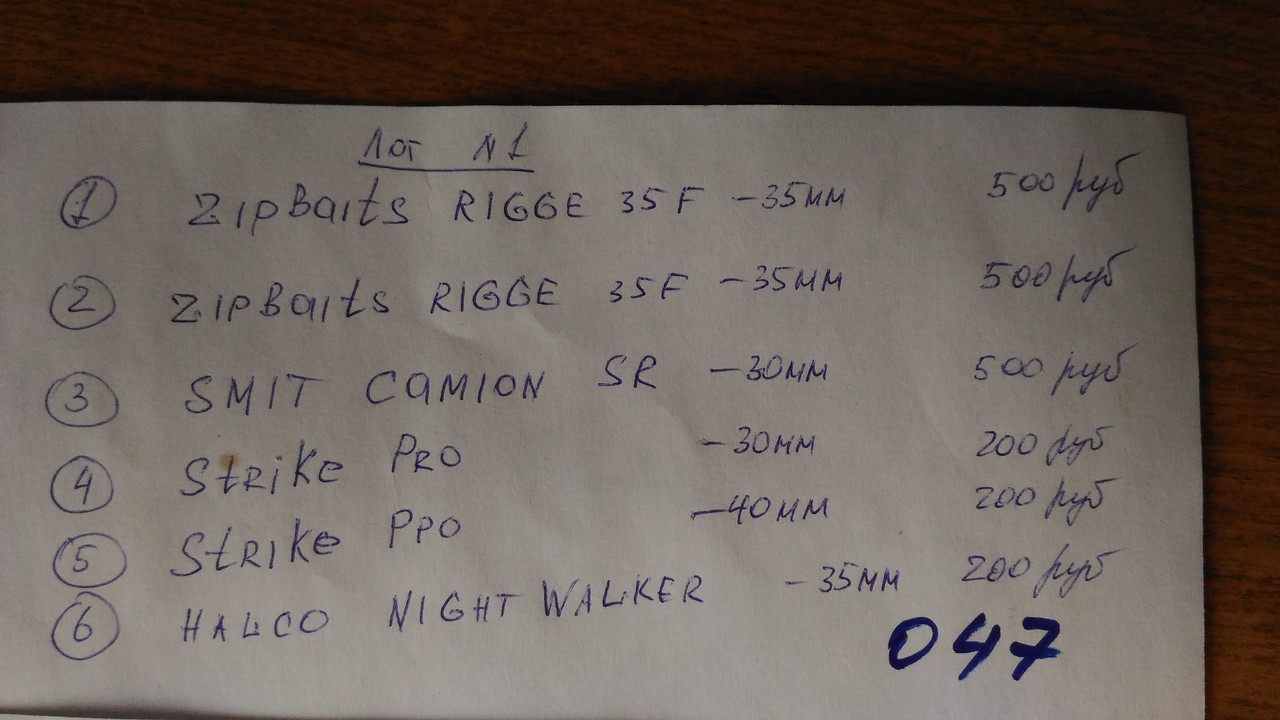 Лот N1
1 ZipBaits RIGGE 35F -35мм 500 руб
2 ZIPBaits RIGGE 35F -35мм 500 руб
3 SMIT CAMION SR -30мм 500 руб
4 StRiKe PRO -30мм 200 руб
5 StRiKe PPO -40мм 200 руб
6 HALCO NIGHT WALKER -35мм 200 руб
047